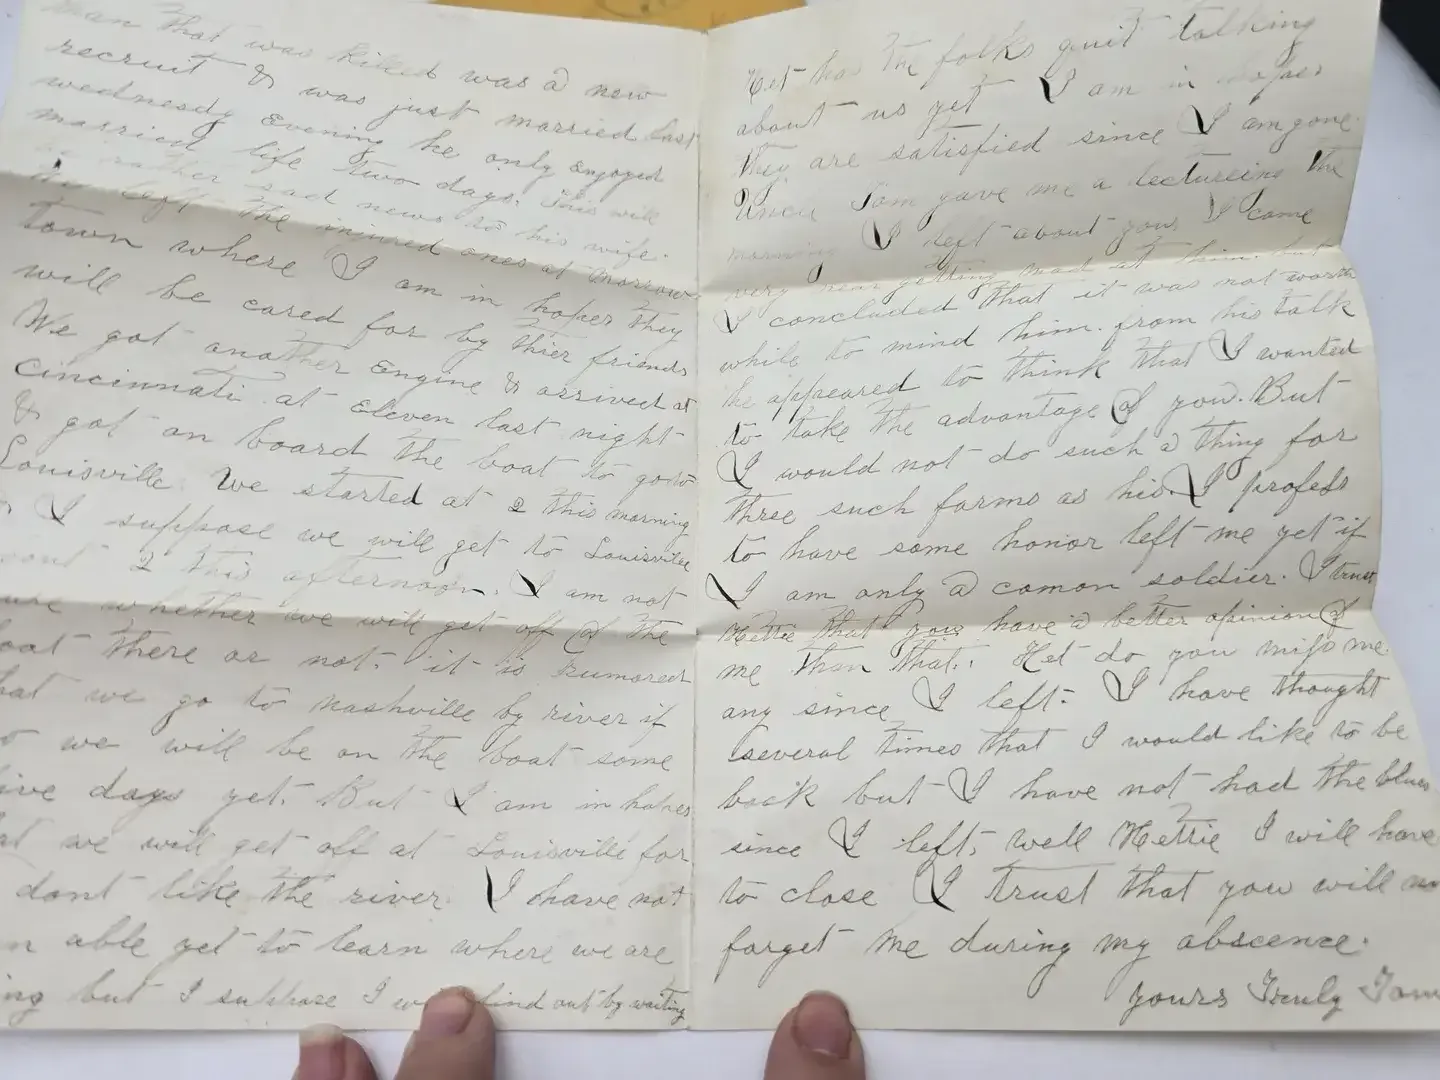 man that was killed was a new
recruit & was just married last
wednesdy Evening he only Enjoyed
married life two days. This will
be rather sad news to his wife.
We left the injured ones at Morrow
town where I am in hopes they
will be cared for by thier friends
We got another Engine & arrived at
cincinnati at Eleven last night
& got on board the boat to go to
Louisville. We started at 2 this morning
I suppose we will get to Louisville
2 this afternoon. I am not
whether we will get off of the
boat there or not. it is rumored
that we go to nashville by river if
so we will be on the boat some
five days yet. But I am in hopes
that we will get off at Louisville for
dont like the river. I have not
able yet to learn where we are
but I suppose I will find out by waiting
Het has the folks quit talking
about us yet I am in hopes
they are satisfied since I am gone
Uncle Sam gave me a lectureing the
morning I left about you I come
very near getting mad at him. but
I concluded that it was not worth
while to mind him. from his talk
he appeared to think that I wanted
to take the advantage of you. But
I would not do such a thing for
three such farms as his. I profess
to have some honor left me yet if
I am only a comon soldier. I trust
Hettie that you have a better opinion of
me than that. Het do you miss me
any since I left. I have thought
several times that I would like to be
back but I have not had the blues
since I left, well Hettie I will have
to close I trust that you will
forget me during my abscence.
yours Truly Tom